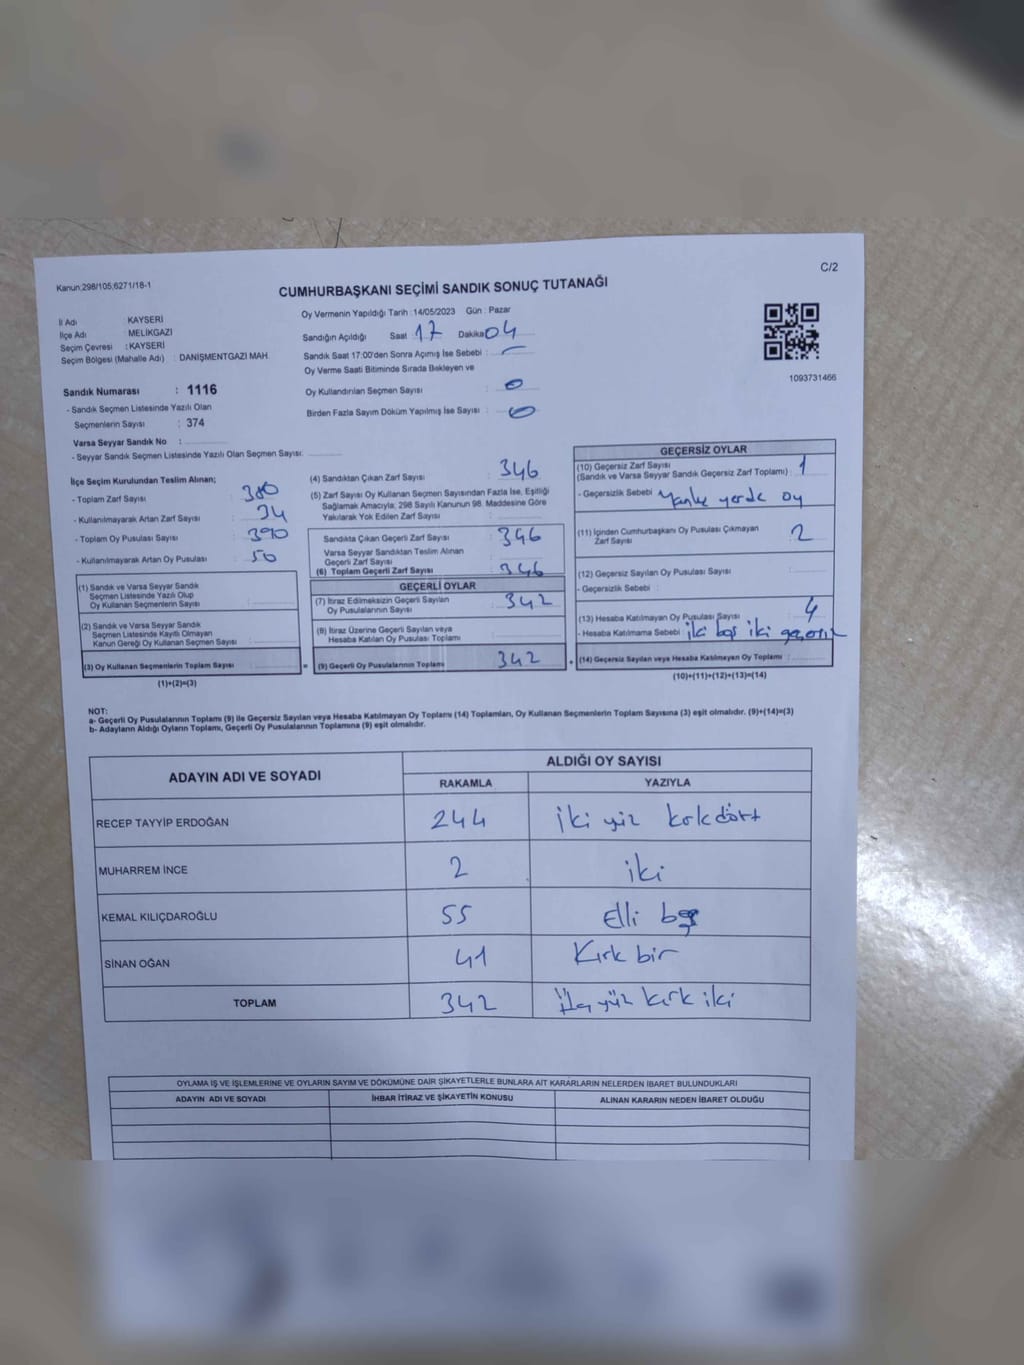 C/2
Kanun;298/105;6271/18-1
CUMHURBAŞKANI SEÇİMİ SANDIK SONUÇ TUTANAĞI
İl Adı KAYSERİ
İlçe Adı MELİKGAZİ
Seçim Çevresi : KAYSERİ
Seçim Bölgesi (Mahalle Adı) : DANİŞMENTGAZİ MAH.
Sandık Numarası : 1116
- Sandık Seçmen Listesinde Yazılı Olan
Seçmenlerin Sayısı : 374
Varsa Seyyar Sandık No :
- Seyyar Sandık Seçmen Listesinde Yazılı Olan Seçmen Sayısı:
Oy Vermenin Yapıldığı Tarih :14/05/2023 Gün : Pazar
Sandığın Açıldığı Saat 17 Dakika 04
Sandık Saat 17:00'den Sonra Açımış İse Sebebi : —
Oy Verme Saati Bitiminde Sırada Bekleyen ve
Oy Kullandırılan Seçmen Sayısı : 0
Birden Fazla Sayım Döküm Yapılmış İse Sayısı : 0
1093731466
İlçe Seçim Kurulundan Teslim Alınan;
- Toplam Zarf Sayısı : 380
- Kullanılmayarak Artan Zarf Sayısı : 34
- Toplam Oy Pusulası Sayısı : 390
- Kullanılmayarak Artan Oy Pusulası : 50
(1) Sandık ve Varsa Seyyar Sandık
Seçmen Listesinde Yazılı Olup
Oy Kullanan Seçmenlerin Sayısı :
(2) Sandık ve Varsa Seyyar Sandık
Seçmen Listesinde Kayıtlı Olmayan
Kanun Gereği Oy Kullanan Seçmen Sayısı :
(3) Oy Kullanan Seçmenlerin Toplam Sayısı :
(1)+(2)=(3)
(4) Sandıktan Çıkan Zarf Sayısı : 346
(5) Zarf Sayısı Oy Kullanan Seçmen Sayısından Fazla İse, Eşitliği
Sağlamak Amacıyla; 298 Sayılı Kanunun 98. Maddesine Göre
Yakılarak Yok Edilen Zarf Sayısı :
Sandıkta Çıkan Geçerli Zarf Sayısı : 346
Varsa Seyyar Sandıktan Teslim Alınan
Geçerli Zarf Sayısı :
(6) Toplam Geçerli Zarf Sayısı : 346
GEÇERLİ OYLAR
(7) İtiraz Edilmeksizin Geçerli Sayılan
Oy Pusulalarının Sayısı : 342
(8) İtiraz Üzerine Geçerli Sayılan veya
Hesaba Katılan Oy Pusulası Toplamı :
= (9) Geçerli Oy Pusulalarının Toplamı : 342 +
GEÇERSİZ OYLAR
(10) Geçersiz Zarf Sayısı
(Sandık ve Varsa Seyyar Sandık Geçersiz Zarf Toplamı) : 1
- Geçersizlik Sebebi : yerde oy
(11) İçinden Cumhurbaşkanı Oy Pusulası Çıkmayan
Zarf Sayısı : 2
(12) Geçersiz Sayılan Oy Pusulası Sayısı :
- Geçersizlik Sebebi :
(13) Hesaba Katılmayan Oy Pusulası Sayısı : 4
- Hesaba Katılmama Sebebi : iki boş iki geçersiz
(14) Geçersiz Sayılan veya Hesaba Katılmayan Oy Toplamı :
(10)+(11)+(12)+(13)=(14)
NOT:
a- Geçerli Oy Pusulalarının Toplamı (9) ile Geçersiz Sayılan veya Hesaba Katılmayan Oy Toplamı (14) Toplamları, Oy Kullanan Seçmenlerin Toplam Sayısına (3) eşit olmalıdır. (9)+(14)=(3)
b- Adayların Aldığı Oyların Toplamı, Geçerli Oy Pusulalarının Toplamına (9) eşit olmalıdır.
ADAYIN ADI VE SOYADI ALDIĞI OY SAYISI
RAKAMLA YAZIYLA
RECEP TAYYİP ERDOĞAN 244 iki yüz kırkdört
MUHARREM İNCE 2 iki
KEMAL KILIÇDAROĞLU 55 Elli beş
SİNAN OĞAN 41 Kırk bir
TOPLAM 342 Üç yüz kırk iki
OYLAMA İŞ VE İŞLEMLERİNE VE OYLARIN SAYIM VE DÖKÜMÜNE DAİR ŞİKAYETLERLE BUNLARA AİT KARARLARIN NELERDEN İBARET BULUNDUKLARI
ADAYIN ADI VE SOYADI İHBAR İTİRAZ VE ŞİKAYETİN KONUSU ALINAN KARARIN NEDEN İBARET OLDUĞU